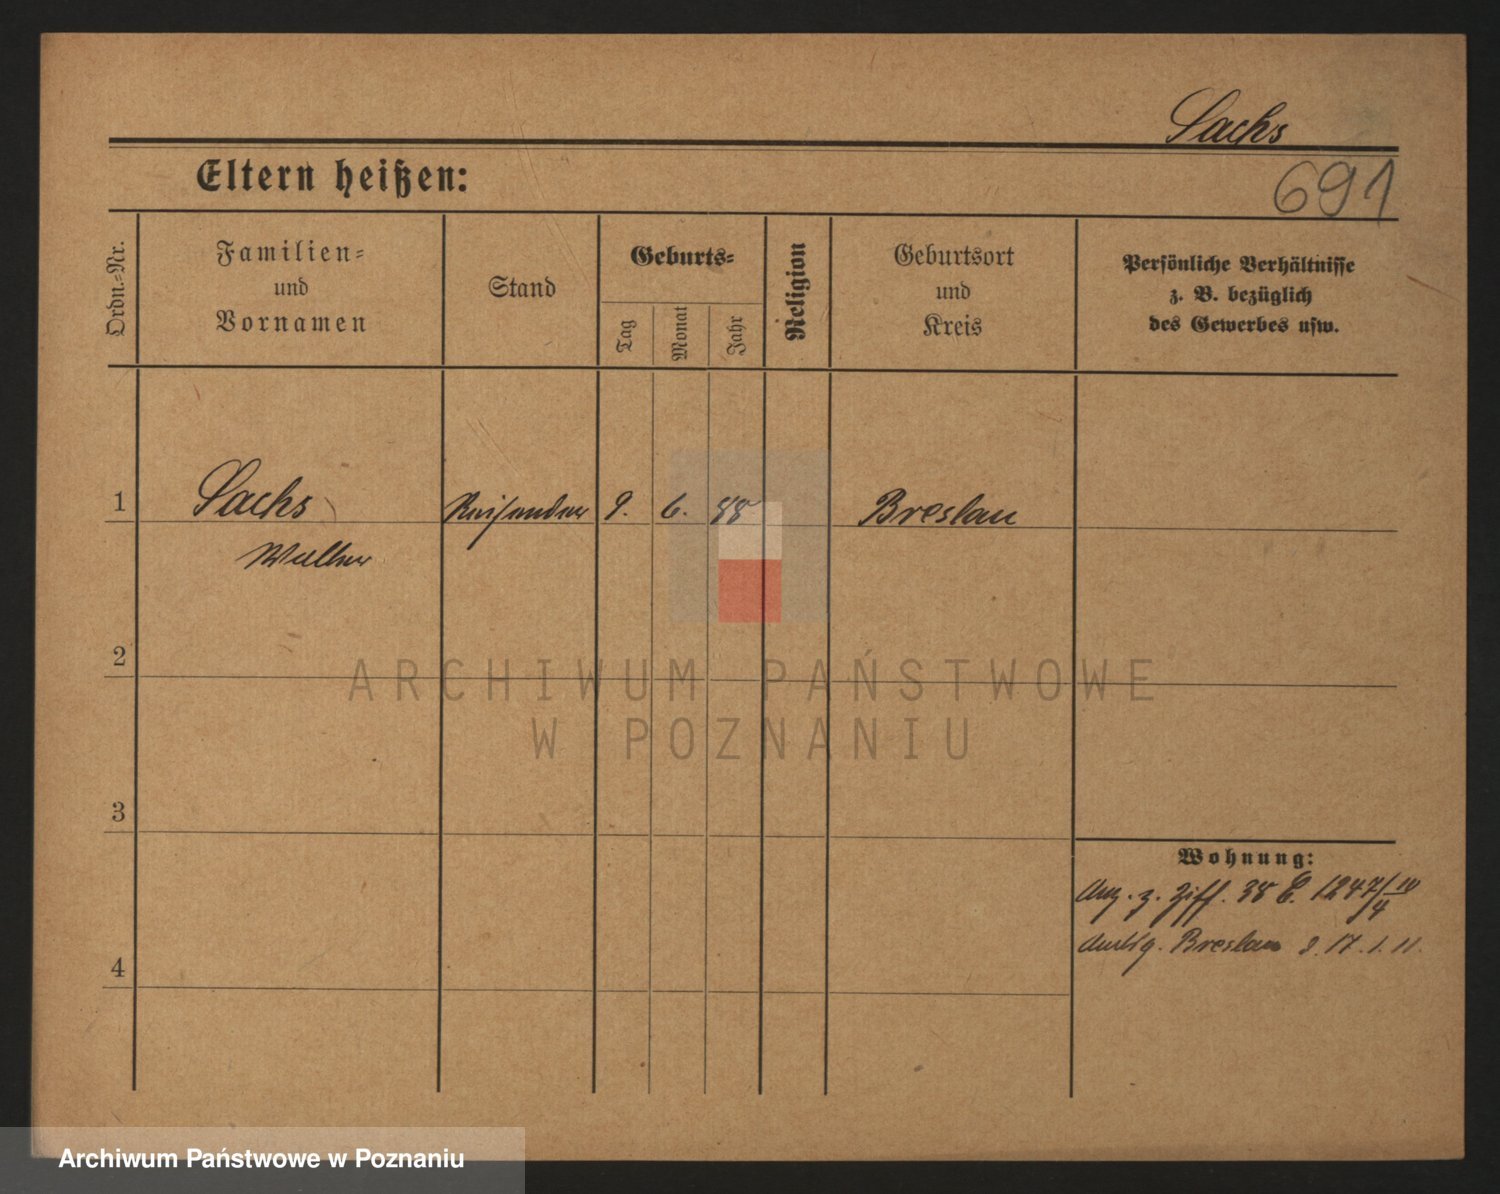 Sachs
Eltern heißen:
691
Ordn.=Nr.
Familien=
und
Vornamen
Stand
Geburts=
Tag
Monat
Jahr
Religion
Geburtsort
und
Kreis
Persönliche Verhältnisse
z. B. bezüglich
des Gewerbes usw.
1
Sachs
Reisender
9.
6.
88
Breslau
2
ARCHIWUM PAŃSTWOWE
W POZNANIU
3
Wohnung:
z. Ziff. 38 E. 1247/10/4
Breslau 17.1.11.
4
Archiwum Państwowe w Poznaniu